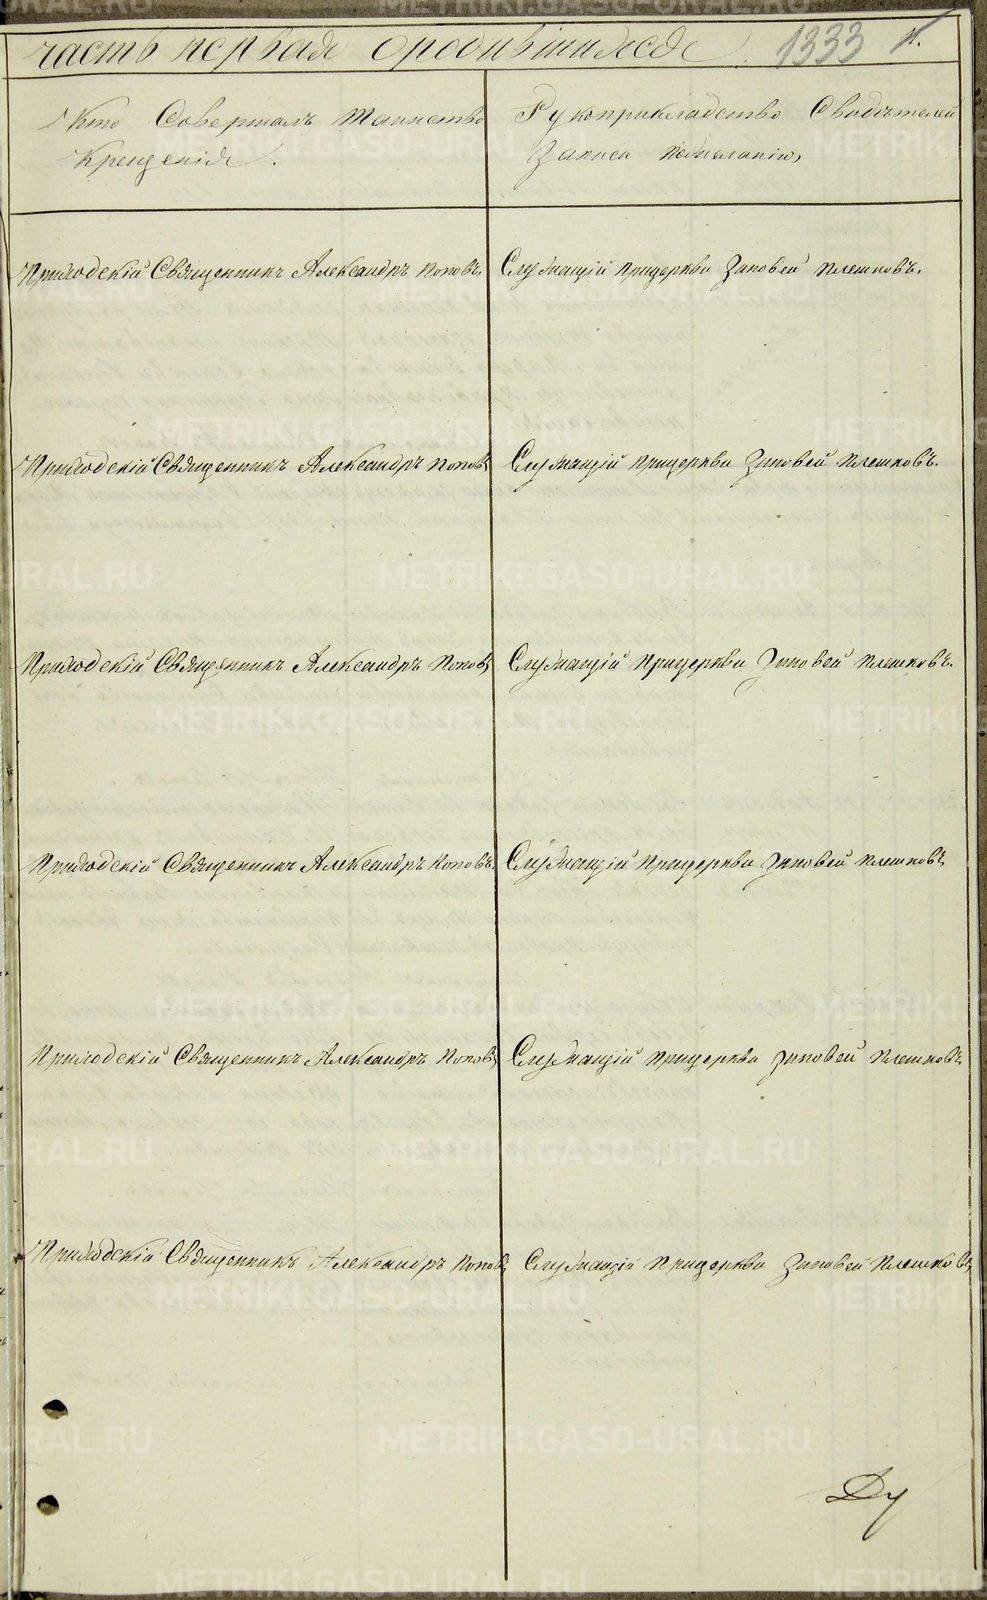 часть первая о родившихся 1333
Кто Совершалъ Таинство Рукоприкладство Свидѣтелей
Крещенія. Записи
Приходскій Священникъ Александръ Поповъ. Служащій при церкви Зиновей Плешковъ.
Приходскій Священникъ Александръ Поповъ Служащій при церкви Зиновей Плешковъ.
Приходскій Священникъ Александръ Поповъ Служащій при церкви Зиновей Плешковъ.
Приходскій Священникъ Александръ Поповъ. Служащій при церкви Зиновей Плешковъ
Приходскій Священникъ Александръ Поповъ Служащій при церкви Зиновей Плешковъ.
Приходскій Священникъ Александръ Поповъ Служащій при церкви Зиновей Плешковъ
METRIKI.GASO-URAL.RU